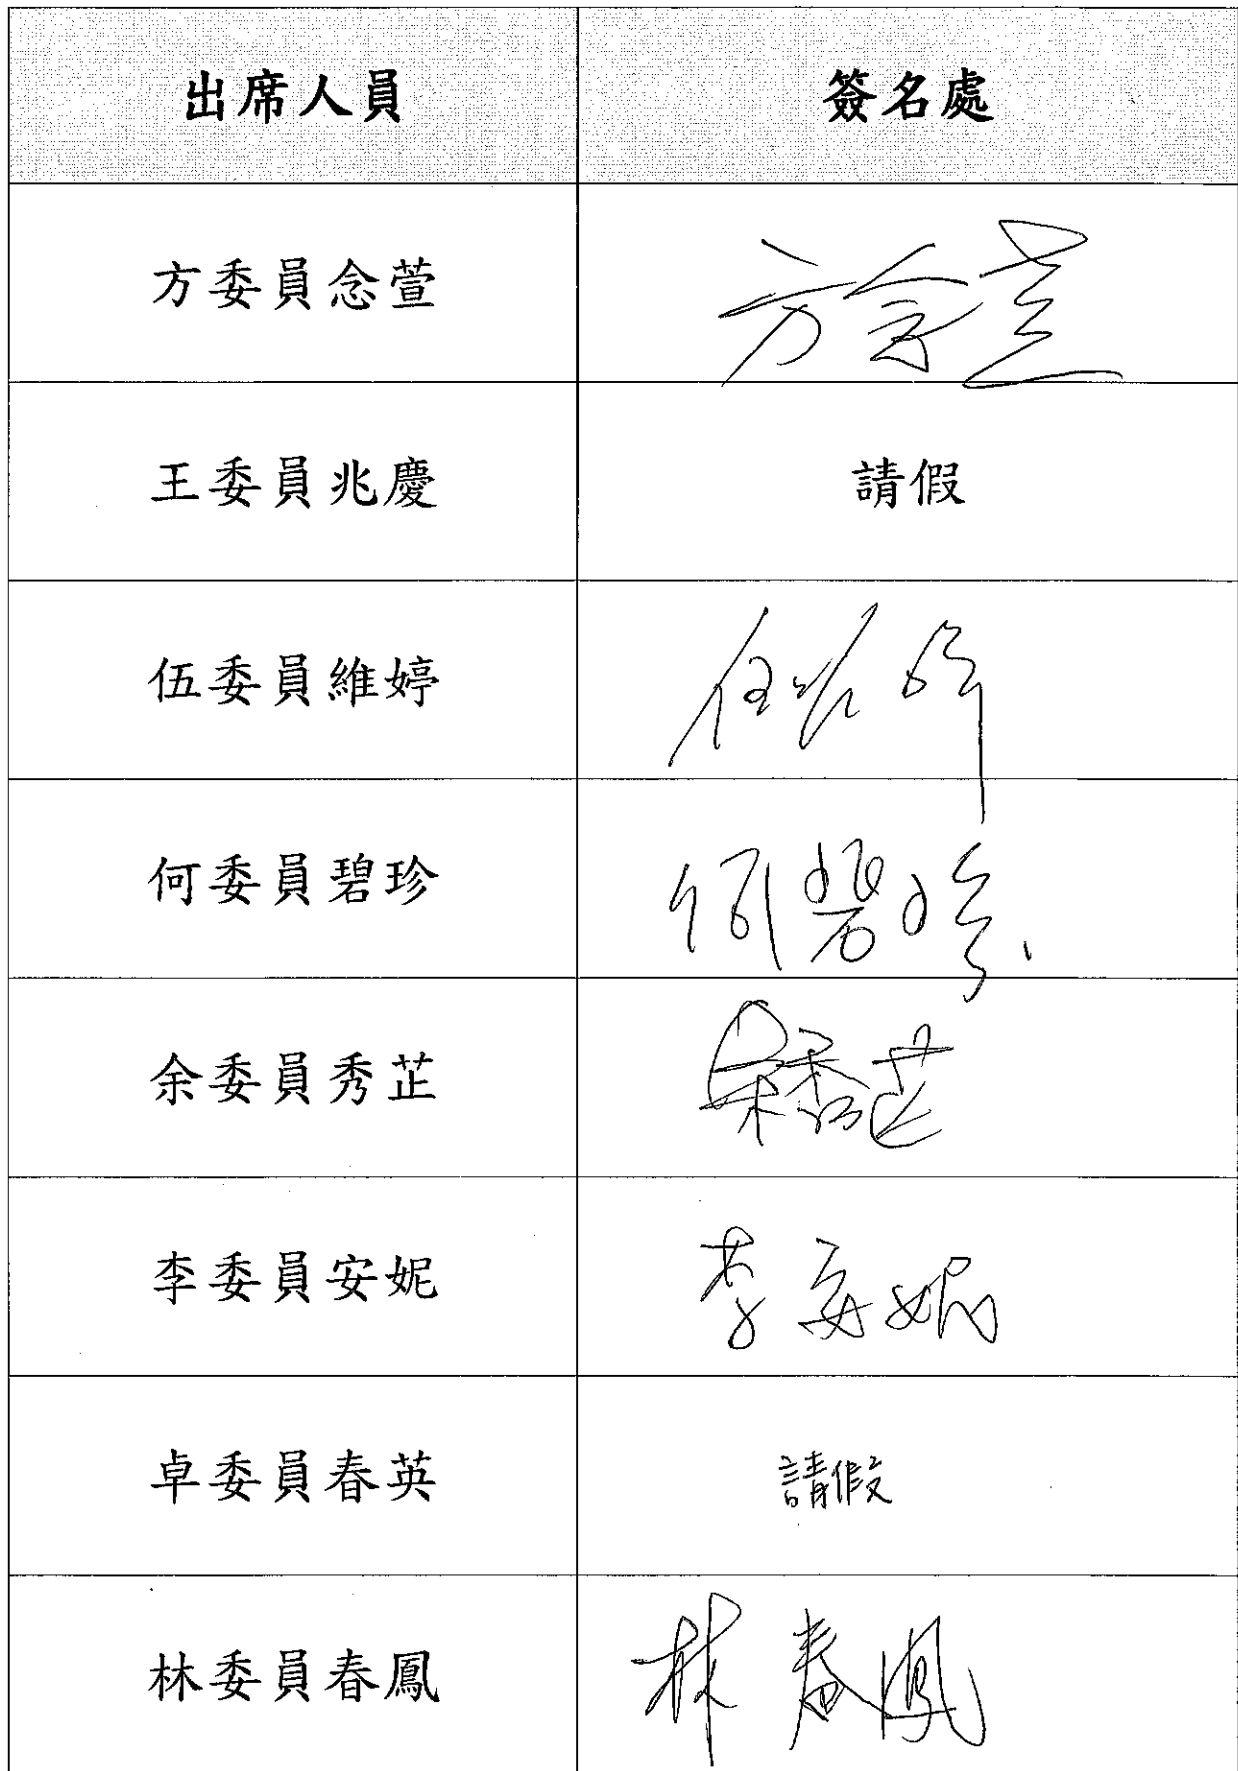 出席人員 簽名處
方委員念萱 方念萱
王委員兆慶 請假
伍委員維婷 伍維婷
何委員碧珍 何碧珍
余委員秀芷 余秀芷
李委員安妮 李安妮
卓委員春英 請假
林委員春鳳 林春鳳